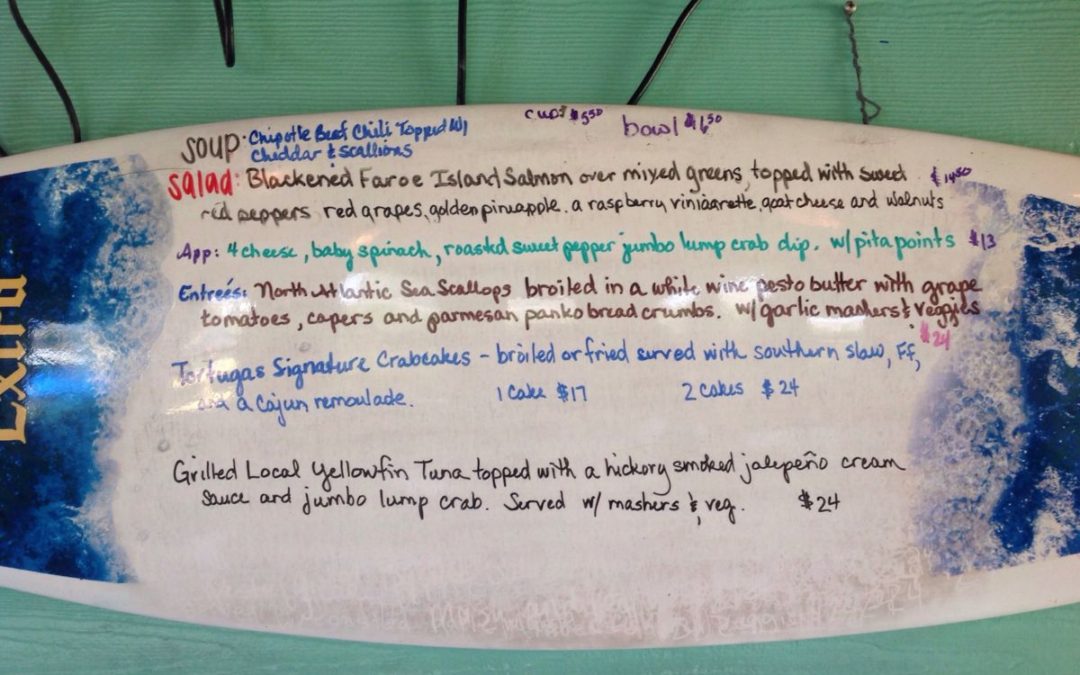 Extra
cup $5.50 bowl $6.50
SOUP: Chipotle Beef Chili Topped w/
Cheddar & Scallions
Salad: Blackened Faroe Island Salmon over mixed greens, topped with sweet $14.50
red peppers red grapes, golden pineapple. a raspberry viniagrette, goat cheese and walnuts
App: 4 cheese, baby spinach, roasted sweet pepper jumbo lump crab dip. w/ pita points $13
Entreés: North Atlantic Sea Scallops broiled in a white wine pesto butter with grape
tomatoes, capers and parmesan panko bread crumbs. w/ garlic mashers & veggies
$24
Tortugas Signature Crabcakes - broiled or fried served with southern slaw, FF,
and a Cajun remoulade. 1 Cake $17 2 cakes $24
Grilled Local Yellowfin Tuna topped with a hickory smoked jalepeño cream
sauce and jumbo lump crab. Served w/ mashers & veg. $24